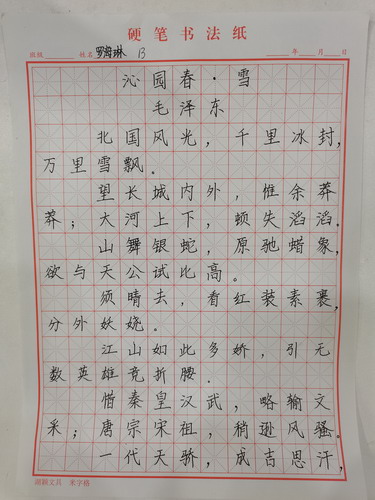 硬笔书法纸
班级 姓名 罗海琳 13 年 月 日
沁园春·雪
毛泽东
北国风光，千里冰封，
万里雪飘.
望长城内外，惟余莽
莽；大河上下，顿失滔滔.
山舞银蛇，原驰蜡象，
欲与天公试比高。
须晴去，看红装素裹，
分外妖娆。
江山如此多娇，引无
数英雄竞折腰.
惜秦皇汉武，略输文
采；唐宗宋祖，稍逊风骚。
一代天骄，成吉思汗，
文具 米字格